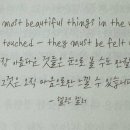 most beautiful things in the
touched - they must be felt
장 아름다운 것들은 눈으로 볼 수도 만질
그것은 오직 마음으로만 느낄 수 있습니다
- 헬렌 켈러